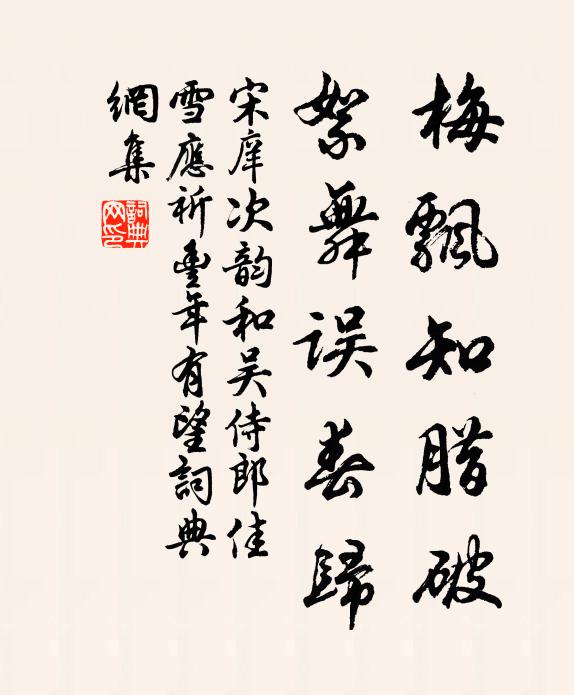 梅飄知腊破
絮舞误春歸
宋庠次韵和吴侍郎佳
雪應祈豊年有望詞典
網集
詞典
网印